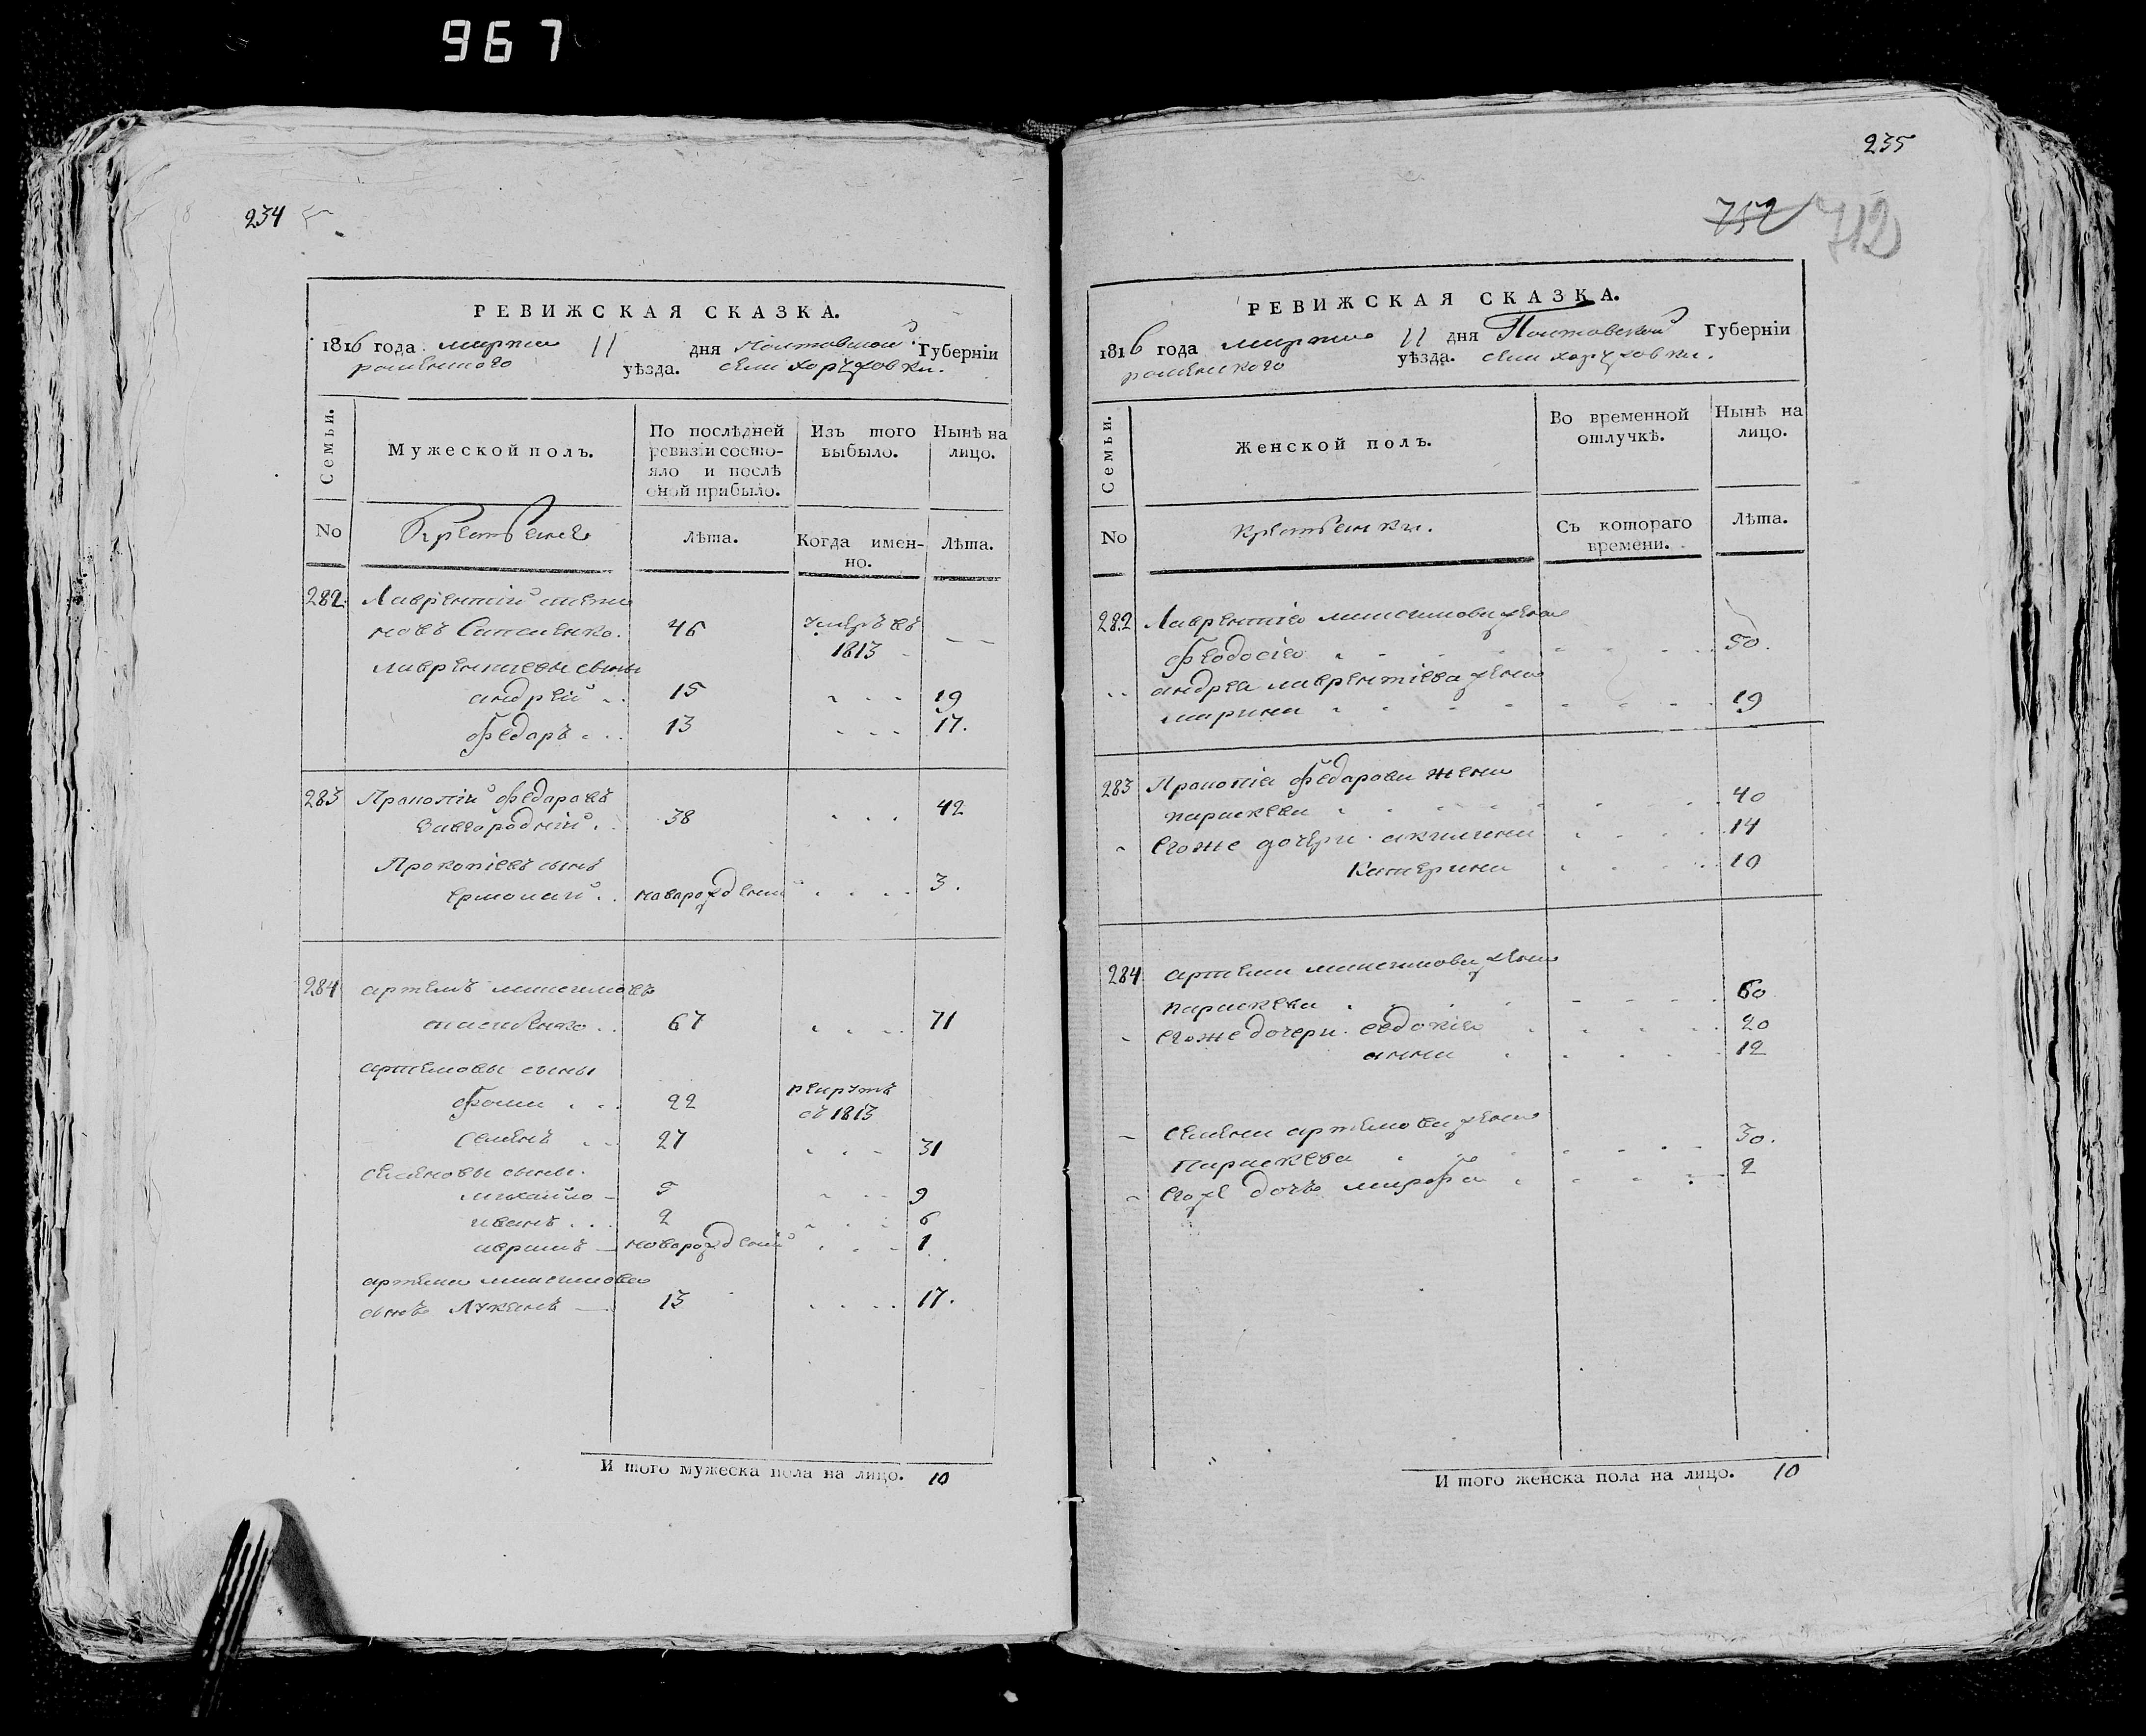 967
234
РЕВИЖСКАЯ СКАЗКА.
1816 года марта 11 дня Полтавской Губерніи
роменского уѣзда. села хоружовки.
Семьи.
Мужеской полъ.
По послѣдней ревизіи состояло и послѣ оной прибыло.
Изъ того выбыло.
Нынѣ на лицо.
No
Крестьяне
лѣта.
Когда именно.
Лѣта.
282 Лаврентій
новъ 46 умеръ въ 1813
лаврентиевы сыны
андрей 15 19
федаръ 13 17.
283 Прокопій федаровъ
завгородній 38 42
Прокопіевъ сынъ
ермолай новарожденій 3.
284 артемъ максимовъ
67 71
артемовы сыны
фома 22 рекрутъ съ 1813
семенъ 27 31
семеновы сыны.
михайло 5 9
иванъ 2 6
авраамъ новарожденій 1
артема максимова
сынъ Лукянъ 13 17.
И того мужеска пола на лицо. 10
235
752 712
РЕВИЖСКАЯ СКАЗКА.
1816 года марта 11 дня Полтавской Губерніи
роменского уѣзда. села хоружовки.
Семьи.
Женской полъ.
Во временной отлучкѣ.
Нынѣ на лицо.
No
крестьянки.
Съ котораго времени.
Лѣта.
282 Лаврентія максимова жена
феодосія 50.
андрея лаврентіева жена
марина 19
283 Прокопія федарова жена
параскева 40
егоже дочери акилина 14
Катерина 10
284 артема максимова жена
параскева 60
егоже дочери. евдокія 20
анна 12
семена артемова жена
параскева 30.
егоже дочь марфа 2
И того женска пола на лицо. 10